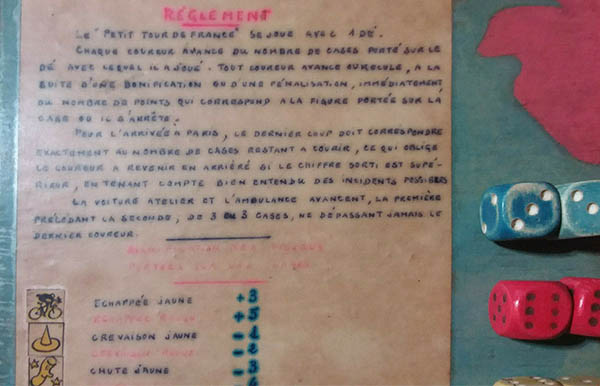 RÉGLEMENT
LE "PETIT TOUR DE FRANCE" SE JOUE AVEC 1 DÉ.
CHAQUE COUREUR AVANCE DU NOMBRE DE CASES PORTÉ SUR LE
DÉ AVEC LEQUEL IL A JOUÉ. TOUT COUREUR AVANCE OU RECULE, A LA
SUITE D'UNE BONIFICATION OU D'UNE PÉNALISATION, IMMÉDIATEMENT
DU NOMBRE DE POINTS QUI CORRESPOND A LA FIGURE PORTÉE SUR LA
CASE OU IL S'ARRÊTE.
POUR L'ARRIVÉE A PARIS, LE DERNIER COUP DOIT CORRESPONDRE
EXACTEMENT AU NOMBRE DE CASES RESTANT A COURIR, CE QUI OBLIGE
LE COUREUR A REVENIR EN ARRIÉRE SI LE CHIFFRE SORTI EST SUPÉ-
RIEUR, EN TENANT COMPTE BIEN ENTENDU DES INCIDENTS POSSIBLES
LA VOITURE ATELIER ET L'AMBULANCE AVANCENT, LA PREMIÈRE
PRÉCÉDANT LA SECONDE, DE 3 EN 3 CASES, NE DÉPASSANT JAMAIS LE
DERNIER COUREUR.
SIGNIFICATION DES FIGURES
PORTÉES SUR LES CASES
ECHAPPÉE JAUNE +3
ECHAPPÉE ROUGE +5
CREVAISON JAUNE -1
CREVAISON ROUGE -2
CHUTE JAUNE -3